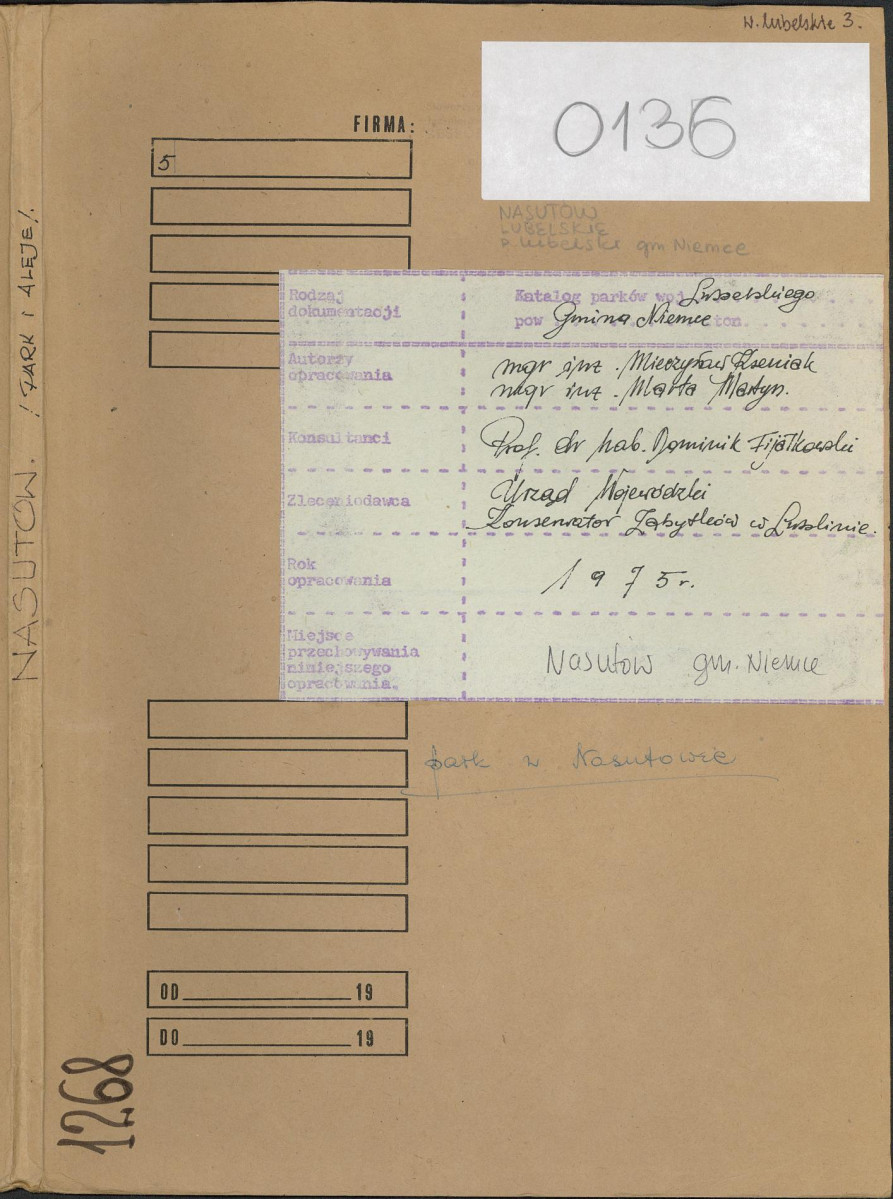 w. lubelskie 3.
0136
FIRMA:
5
NASUTÓW
LUBELSKIE
p. lubelski gm Niemce
Rodzaj
dokumentacji
Katalog parków woj Lubelskiego
pow Gmina Niemce
Autorzy
opracowania
mgr inż. Mieczysław Kseniak
mgr inż. Marta Martyn.
Konsultanci
Prof. dr hab. Dominik Fijałkowski
Zleceniodawca
Urząd Wojewódzki
Konserwator Zabytków w Lublinie.
Rok
opracowania
1975 r.
Miejsce
przechowywania
niniejszego
opracowania.
Nasutów gm. Niemce
park w Nasutowie
OD 19
DO 19
1268
NASUTÓW. /PARK I ALEJE/.